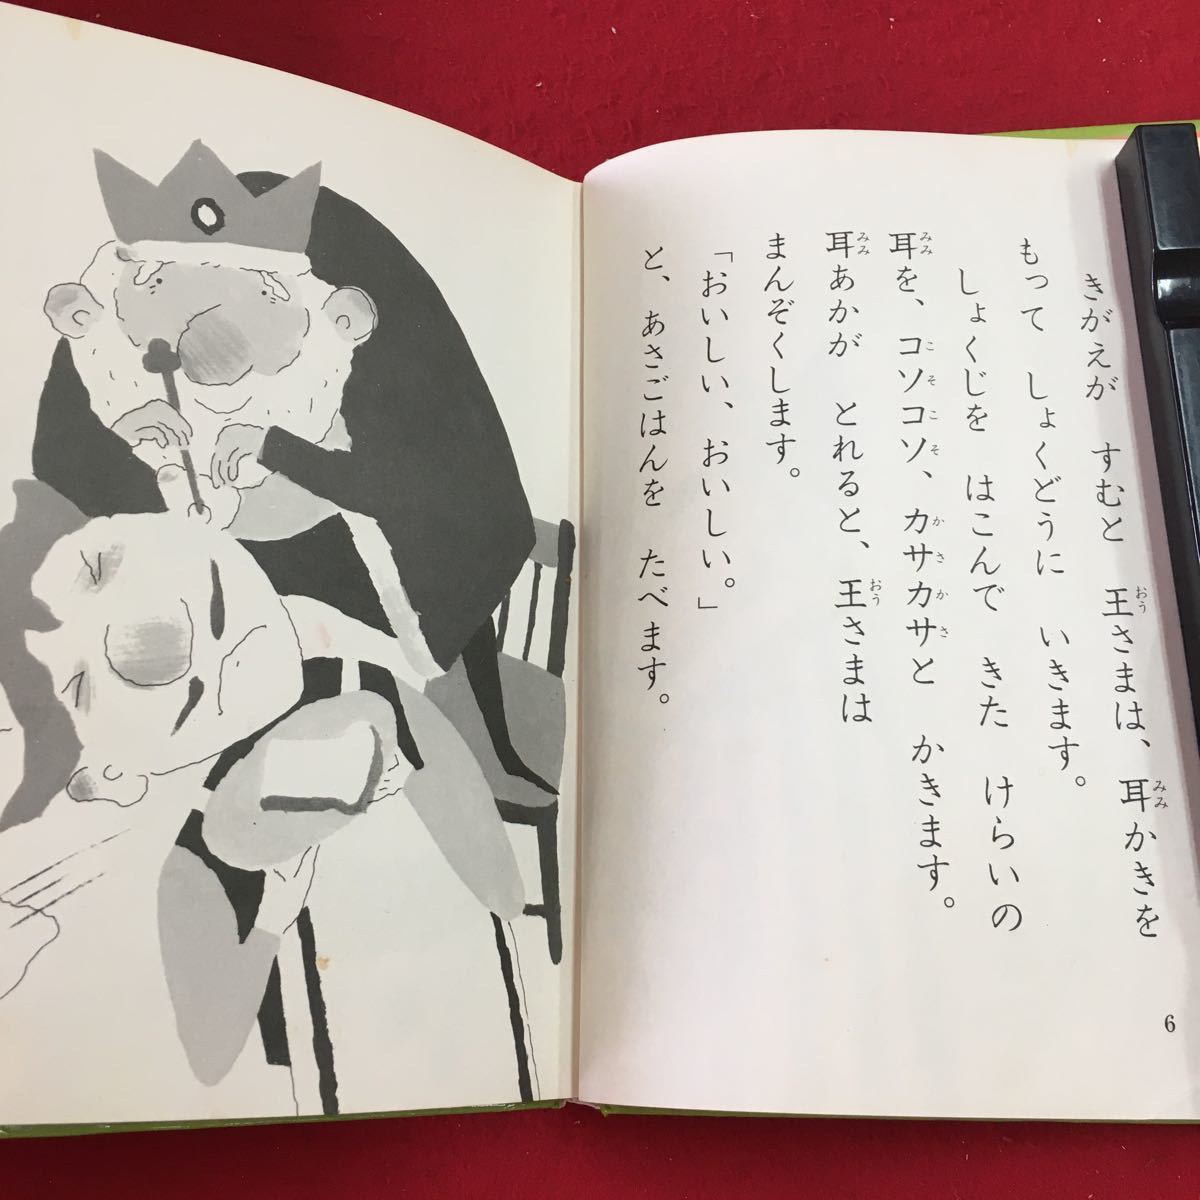 きがえが すむと 王さまは、耳かきを
もって しょくどうに いきます。
しょくじを はこんで きた けらいの
耳を、コソコソ、カサカサと かきます。
耳あかが とれると、王さまは
まんぞくします。
「おいしい、おいしい。」
と、あさごはんを たべます。
6